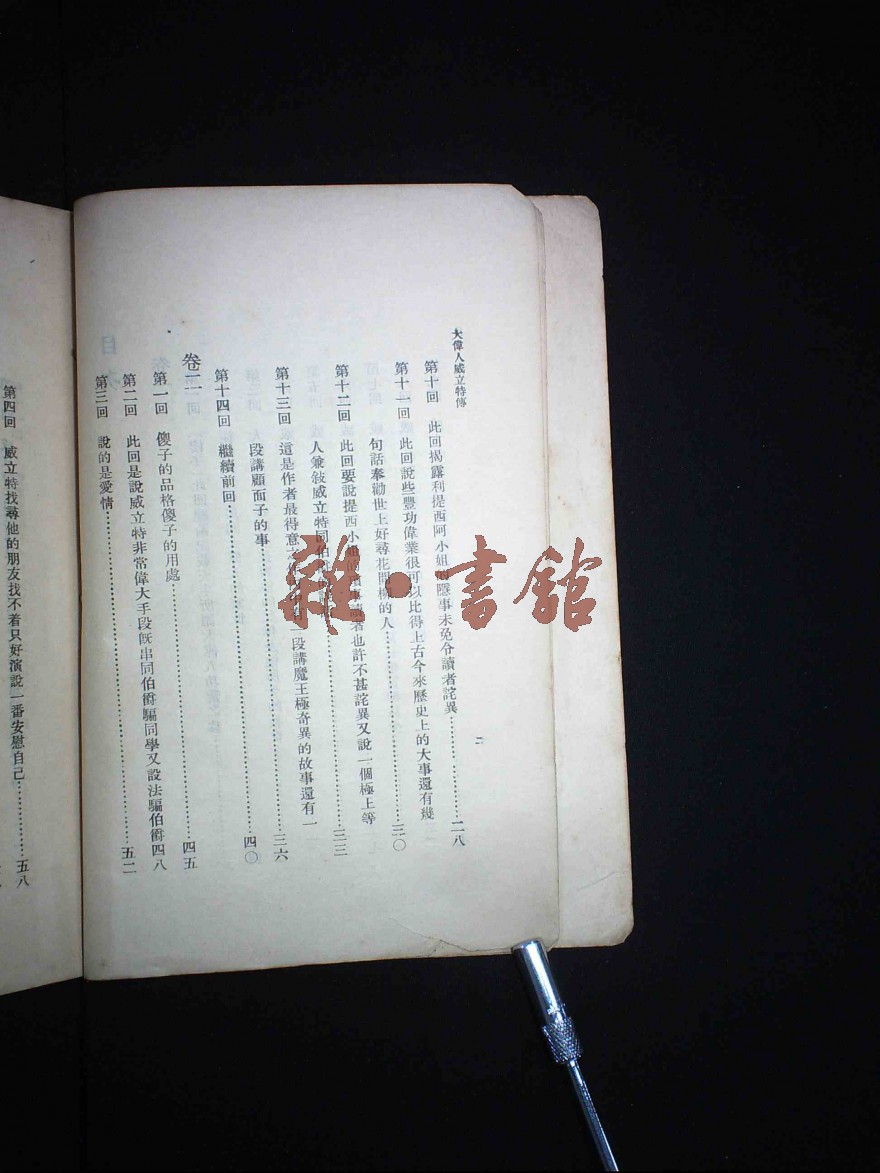 大偉人威立特傳
二
第十回 此回揭露利提西阿小姐的隱事未免令讀者詫異…………二八
第十一回 此回說些豐功偉業很可以比得上古今來歷史上的大事還有幾
句話奉勸世上好尋花問柳的人…………三〇
第十二回 此回要說提西小姐的 讀者也許不甚詫異又說一個極上等
人兼敍威立特同伯爵…………三三
第十三回 這是作者最得意之 有一段講魔王極奇異的故事還有一
段講顧面子的事…………三六
第十四回 繼續前回…………四〇
卷二
第一回 傻子的品格傻子的用處…………四五
第二回 此回是說威立特非常偉大手段旣串同伯爵騙同學又設法騙伯爵四八
第三回 說的是愛情…………五二
第四回 威立特找尋他的朋友找不着只好演說一番安慰自己…………五八
雜·書館